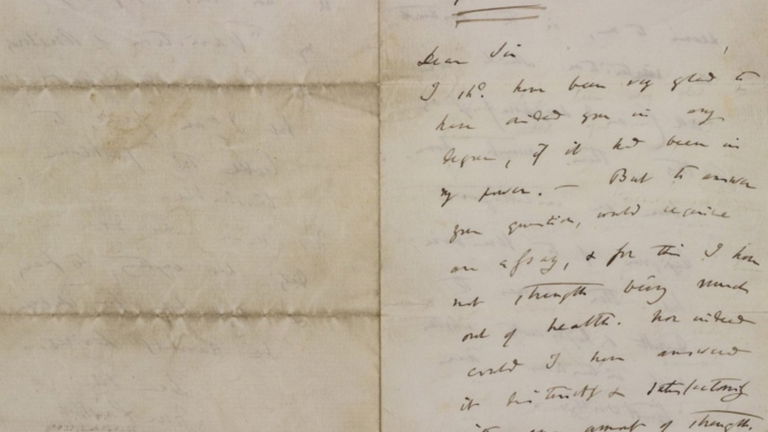 Dear Sir
I shd. have been very glad to
have aided you in any
degree, if it had been in
my power. — But to answer
your question, would require
an essay, & for this I have
not strength being much
out of health. Nor indeed
could I have answered
it distinctly & satisfactorily
with any amount of strength.